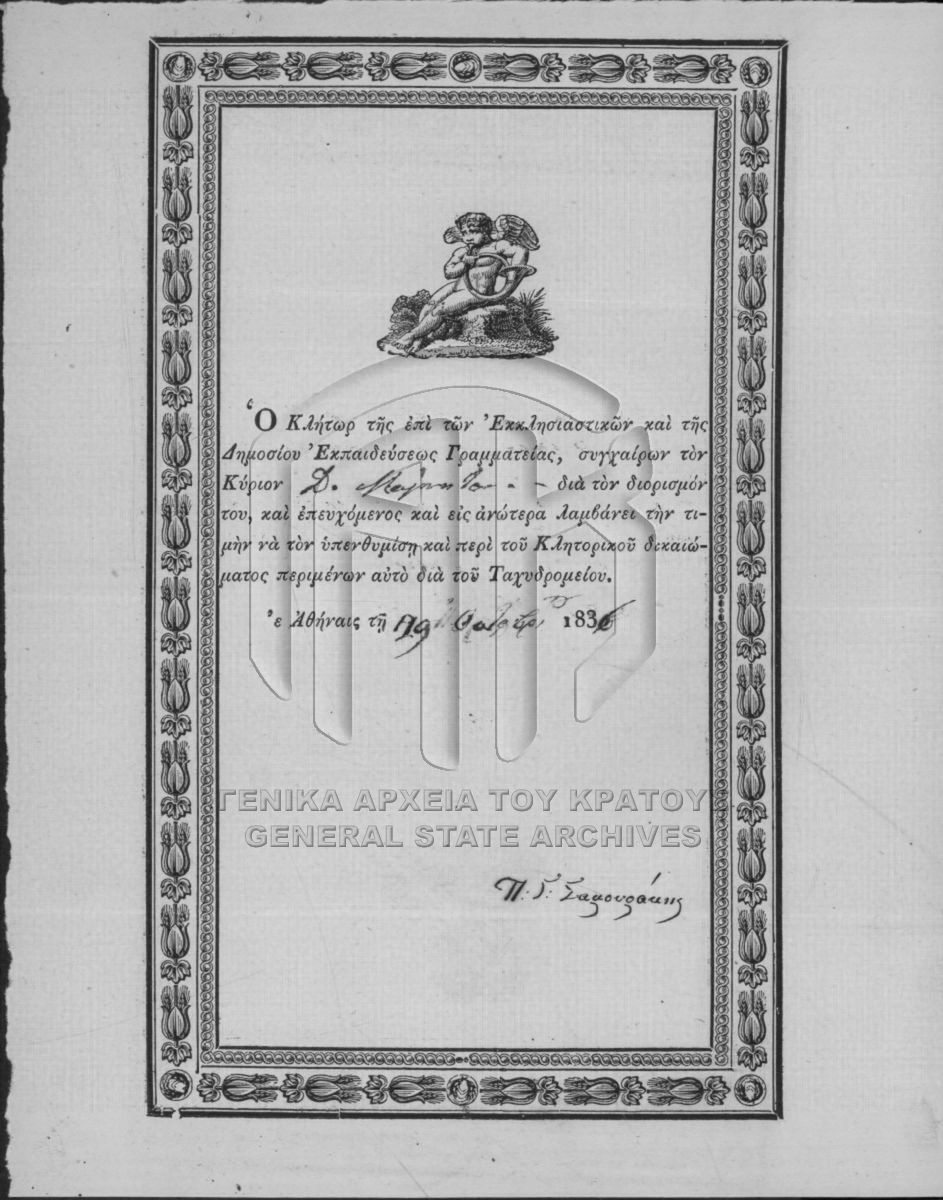 Ὁ Κλήτωρ τῆς ἐπὶ τῶν Ἐκκλησιαστικῶν καὶ τῆς
Δημοσίου Ἐκπαιδεύσεως Γραμματείας, συγχαίρων τὸν
Κύριον Δ. διὰ τὸν διορισμόν
του, καὶ ἐπευχόμενος καὶ εἰς ἀνώτερα λαμβάνει τὴν τι-
μὴν νὰ τὸν ὑπενθυμίσῃ καὶ περὶ τοῦ Κλητορικοῦ δικαιώ-
ματος περιμένων αὐτὸ διὰ τοῦ Ταχυδρομείου.
Ἐ Ἀθήναις τῇ 19 183
ΓΕΝΙΚΑ ΑΡΧΕΙΑ ΤΟΥ ΚΡΑΤΟΥ
GENERAL STATE ARCHIVES
Π: Γ: